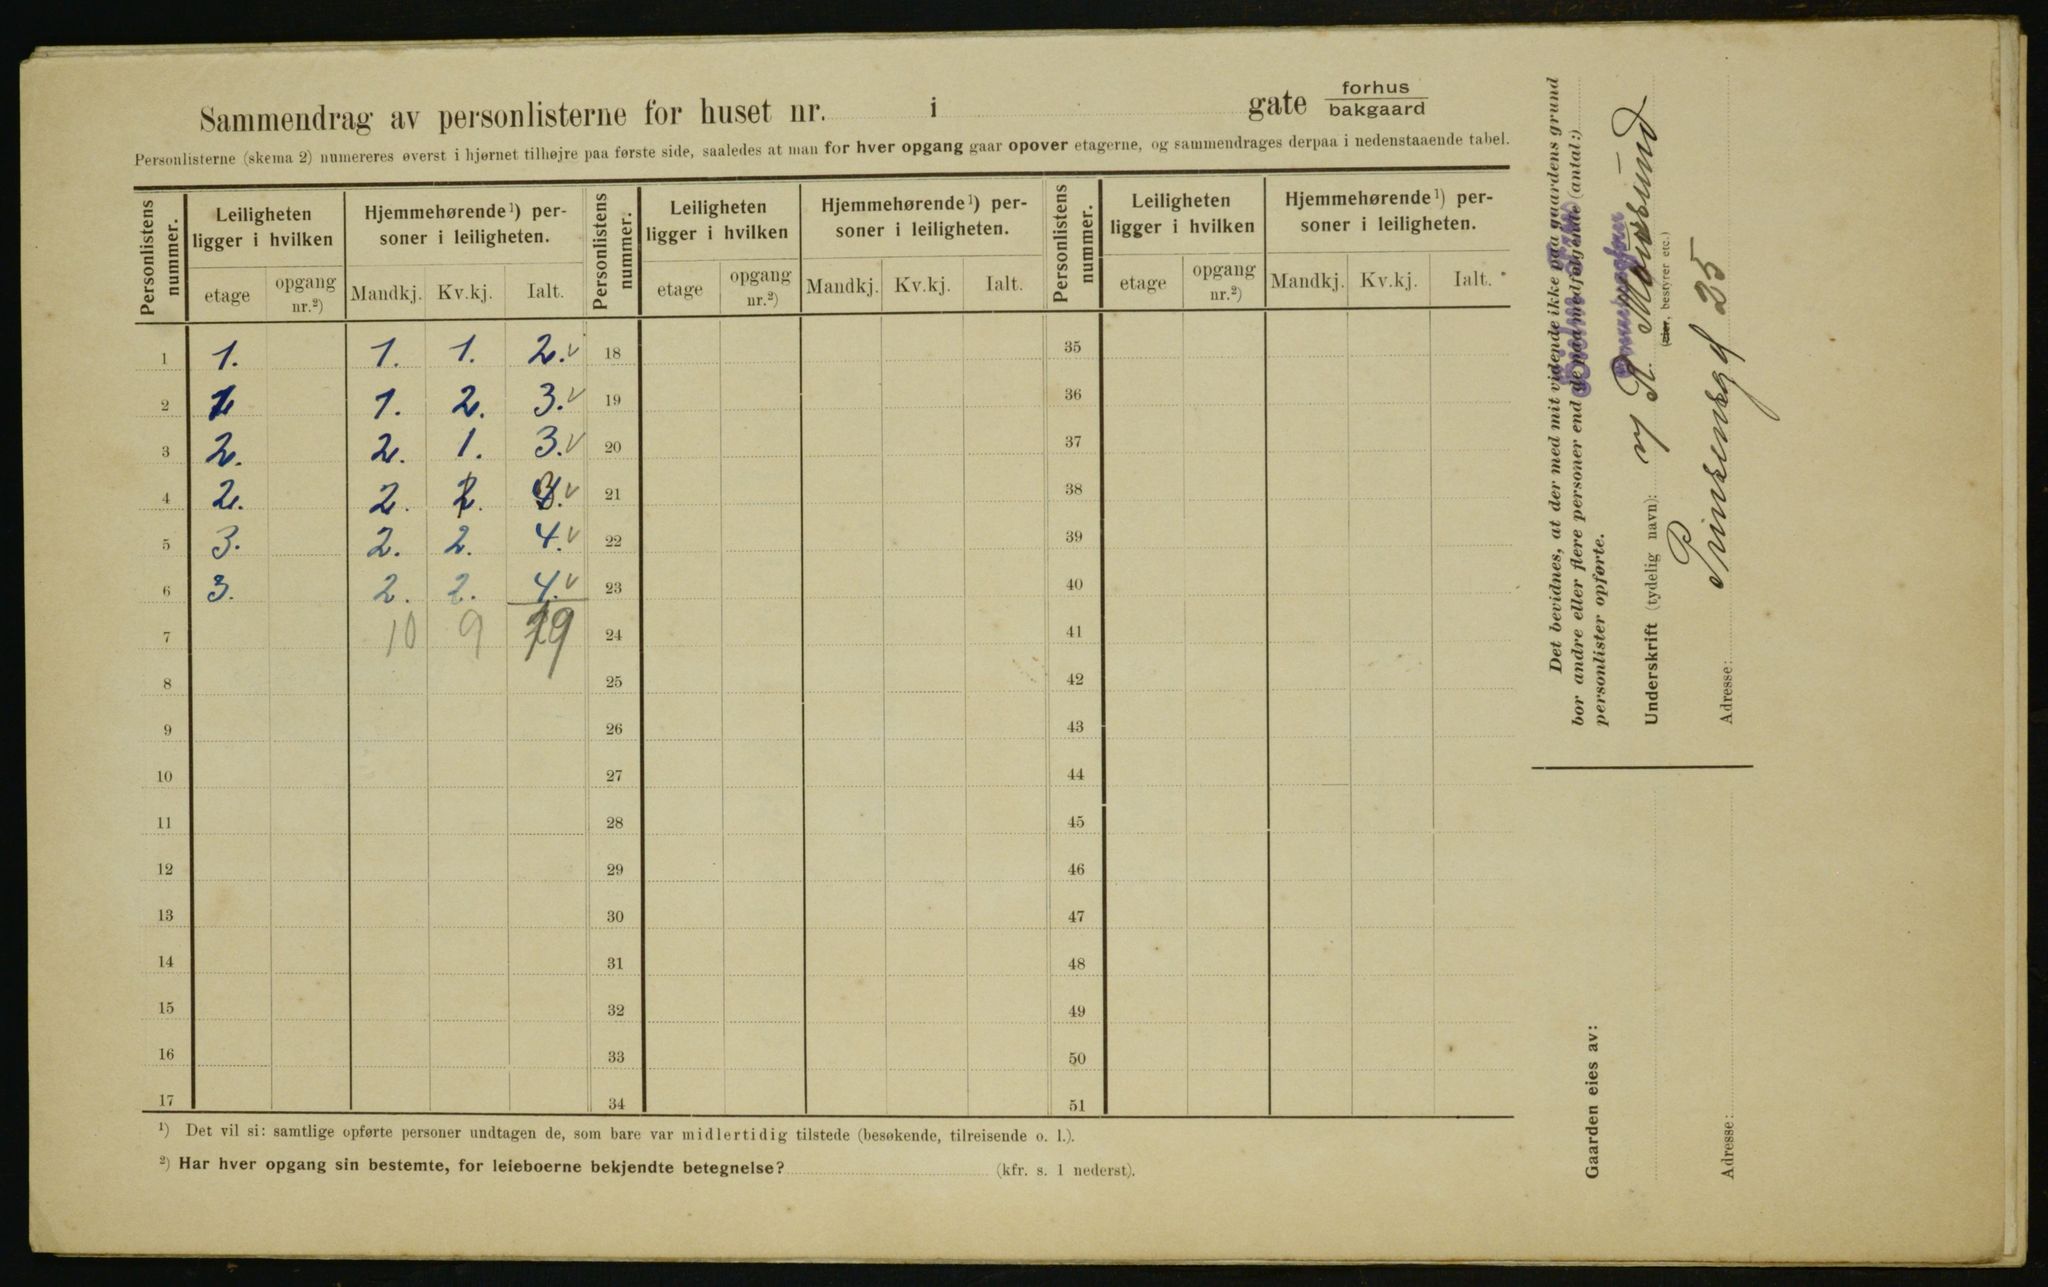 Sammendrag av personlisterne for huset nr. i gate forhus
bakgaard
Personlisterne (skema 2) numereres øverst i hjørnet tilhøjre paa første side, saaledes at man for hver opgang gaar opover etagerne, og sammendrages derpaa i nedenstaaende tabel.
Personlistens nummer. Leiligheten ligger i hvilken Hjemmehørende¹) personer i leiligheten. Personlistens nummer. Leiligheten ligger i hvilken Hjemmehørende¹) personer i leiligheten. Personlistens nummer. Leiligheten ligger i hvilken Hjemmehørende¹) personer i leiligheten.
etage opgang nr.²) Mandkj. Kv.kj. Ialt. etage opgang nr.²) Mandkj. Kv.kj. Ialt. etage opgang nr.²) Mandkj. Kv.kj. Ialt.
1 1. 1. 1. 2. 18 35
2 1. 2. 3. 19 36
3 2. 2. 1. 3. 20 37
4 2. 2. 21 38
5 3. 2. 2. 4. 22 39
6 3. 2. 2. 4. 23 40
7 10 9 19 24 41
8 25 42
9 26 43
10 27 44
11 28 45
12 29 46
13 30 47
14 31 48
15 32 49
16 33 50
17 34 51
¹) Det vil si: samtlige opførte personer undtagen de, som bare var midlertidig tilstede (besøkende, tilreisende o. l.).
²) Har hver opgang sin bestemte, for leieboerne bekjendte betegnelse? (kfr. s. 1 nederst).
Det bevidnes, at der med mit vidende ikke paa gaardens grund
bor andre eller flere personer end de paa medfølgende (antal:)
personlister opførte.
Underskrift (tydelig navn):
(eier, bestyrer etc.)
Adresse: Prinsensg 25
Gaarden eies av:
Adresse: